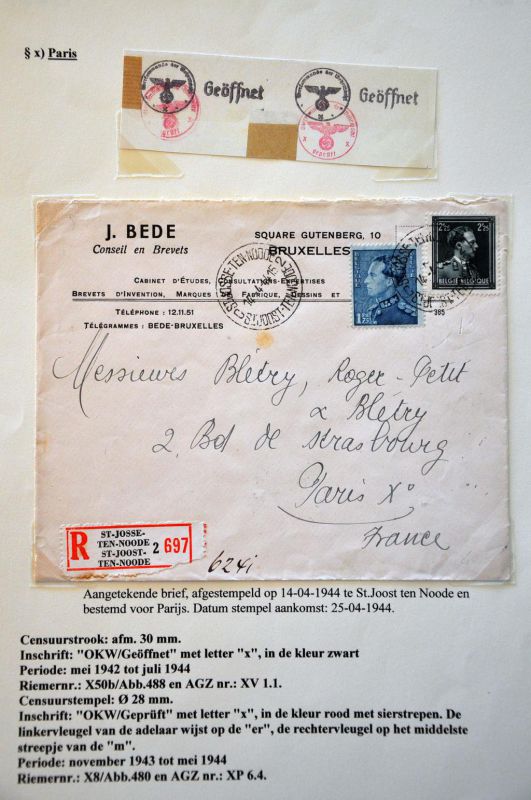 § x) Paris
Geöffnet
Geöffnet
J. BEDE
Conseil en Brevets
SQUARE GUTENBERG, 10
BRUXELLES
CABINET D'ÉTUDES, CONSULTATIONS-EXPERTISES
BREVETS D'INVENTION, MARQUES DE FABRIQUE, DESSINS ET
TÉLÉPHONE : 12.11.51
TÉLÉGRAMMES : BEDE-BRUXELLES
ST-JOOST-TEN-NOODE
1.75
2.25 2.25
BELGIE BELGIQUE
365
Messieurs Blétry, Roger-Petit
& Blétry
2, Bd de Strasbourg
Paris Xº
France
R
ST-JOSSE-
TEN-NOODE
ST-JOOST-
TEN-NOODE
2 697
6241
Aangetekende brief, afgestempeld op 14-04-1944 te St.Joost ten Noode en
bestemd voor Parijs. Datum stempel aankomst: 25-04-1944.
Censuurstrook: afm. 30 mm.
Inschrift: "OKW/Geöffnet" met letter "x", in de kleur zwart
Periode: mei 1942 tot juli 1944
Riemernr.: X50b/Abb.488 en AGZ nr.: XV 1.1.
Censuurstempel: Ø 28 mm.
Inschrift: "OKW/Geprüft" met letter "x", in de kleur rood met sierstrepen. De
linkervleugel van de adelaar wijst op de "er", de rechtervleugel op het middelste
streepje van de "m".
Periode: november 1943 tot mei 1944
Riemernr.: X8/Abb.480 en AGZ nr.: XP 6.4.